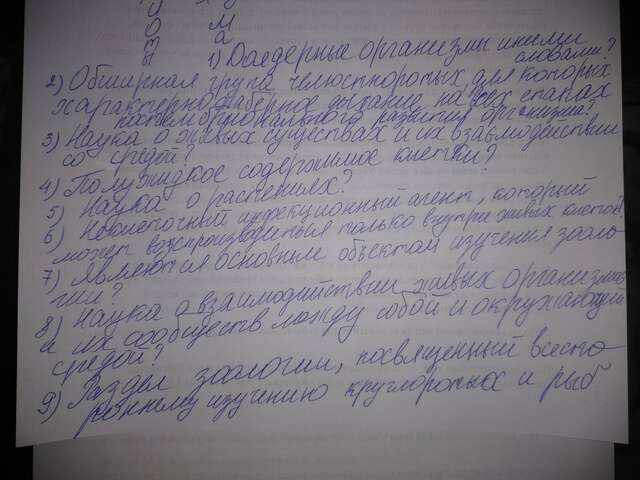 О М
т а
ы 1) Доядерные организмы иными
словами?
2) Обширная група челюстноротых, для которых
характерно жаберное дыхание на всех этапах
постэмбрионального развития организма?
3) Наука о живых существах и их взаимодействии
со средой?
4) Полужидкое содержимое клетки?
5) Наука о растениях?
6) Неклеточный инфекционный агент, который
может воспроизводиться только внутри живых клеток?
7) Являются основным объектом изучения зооло-
гии?
8) Наука о взаимодействии живых организмов
и их сообществ между собой и окружающей
средой?
9) Раздел зоологии, посвященный всесто-
роннему изучению круглоротых и рыб